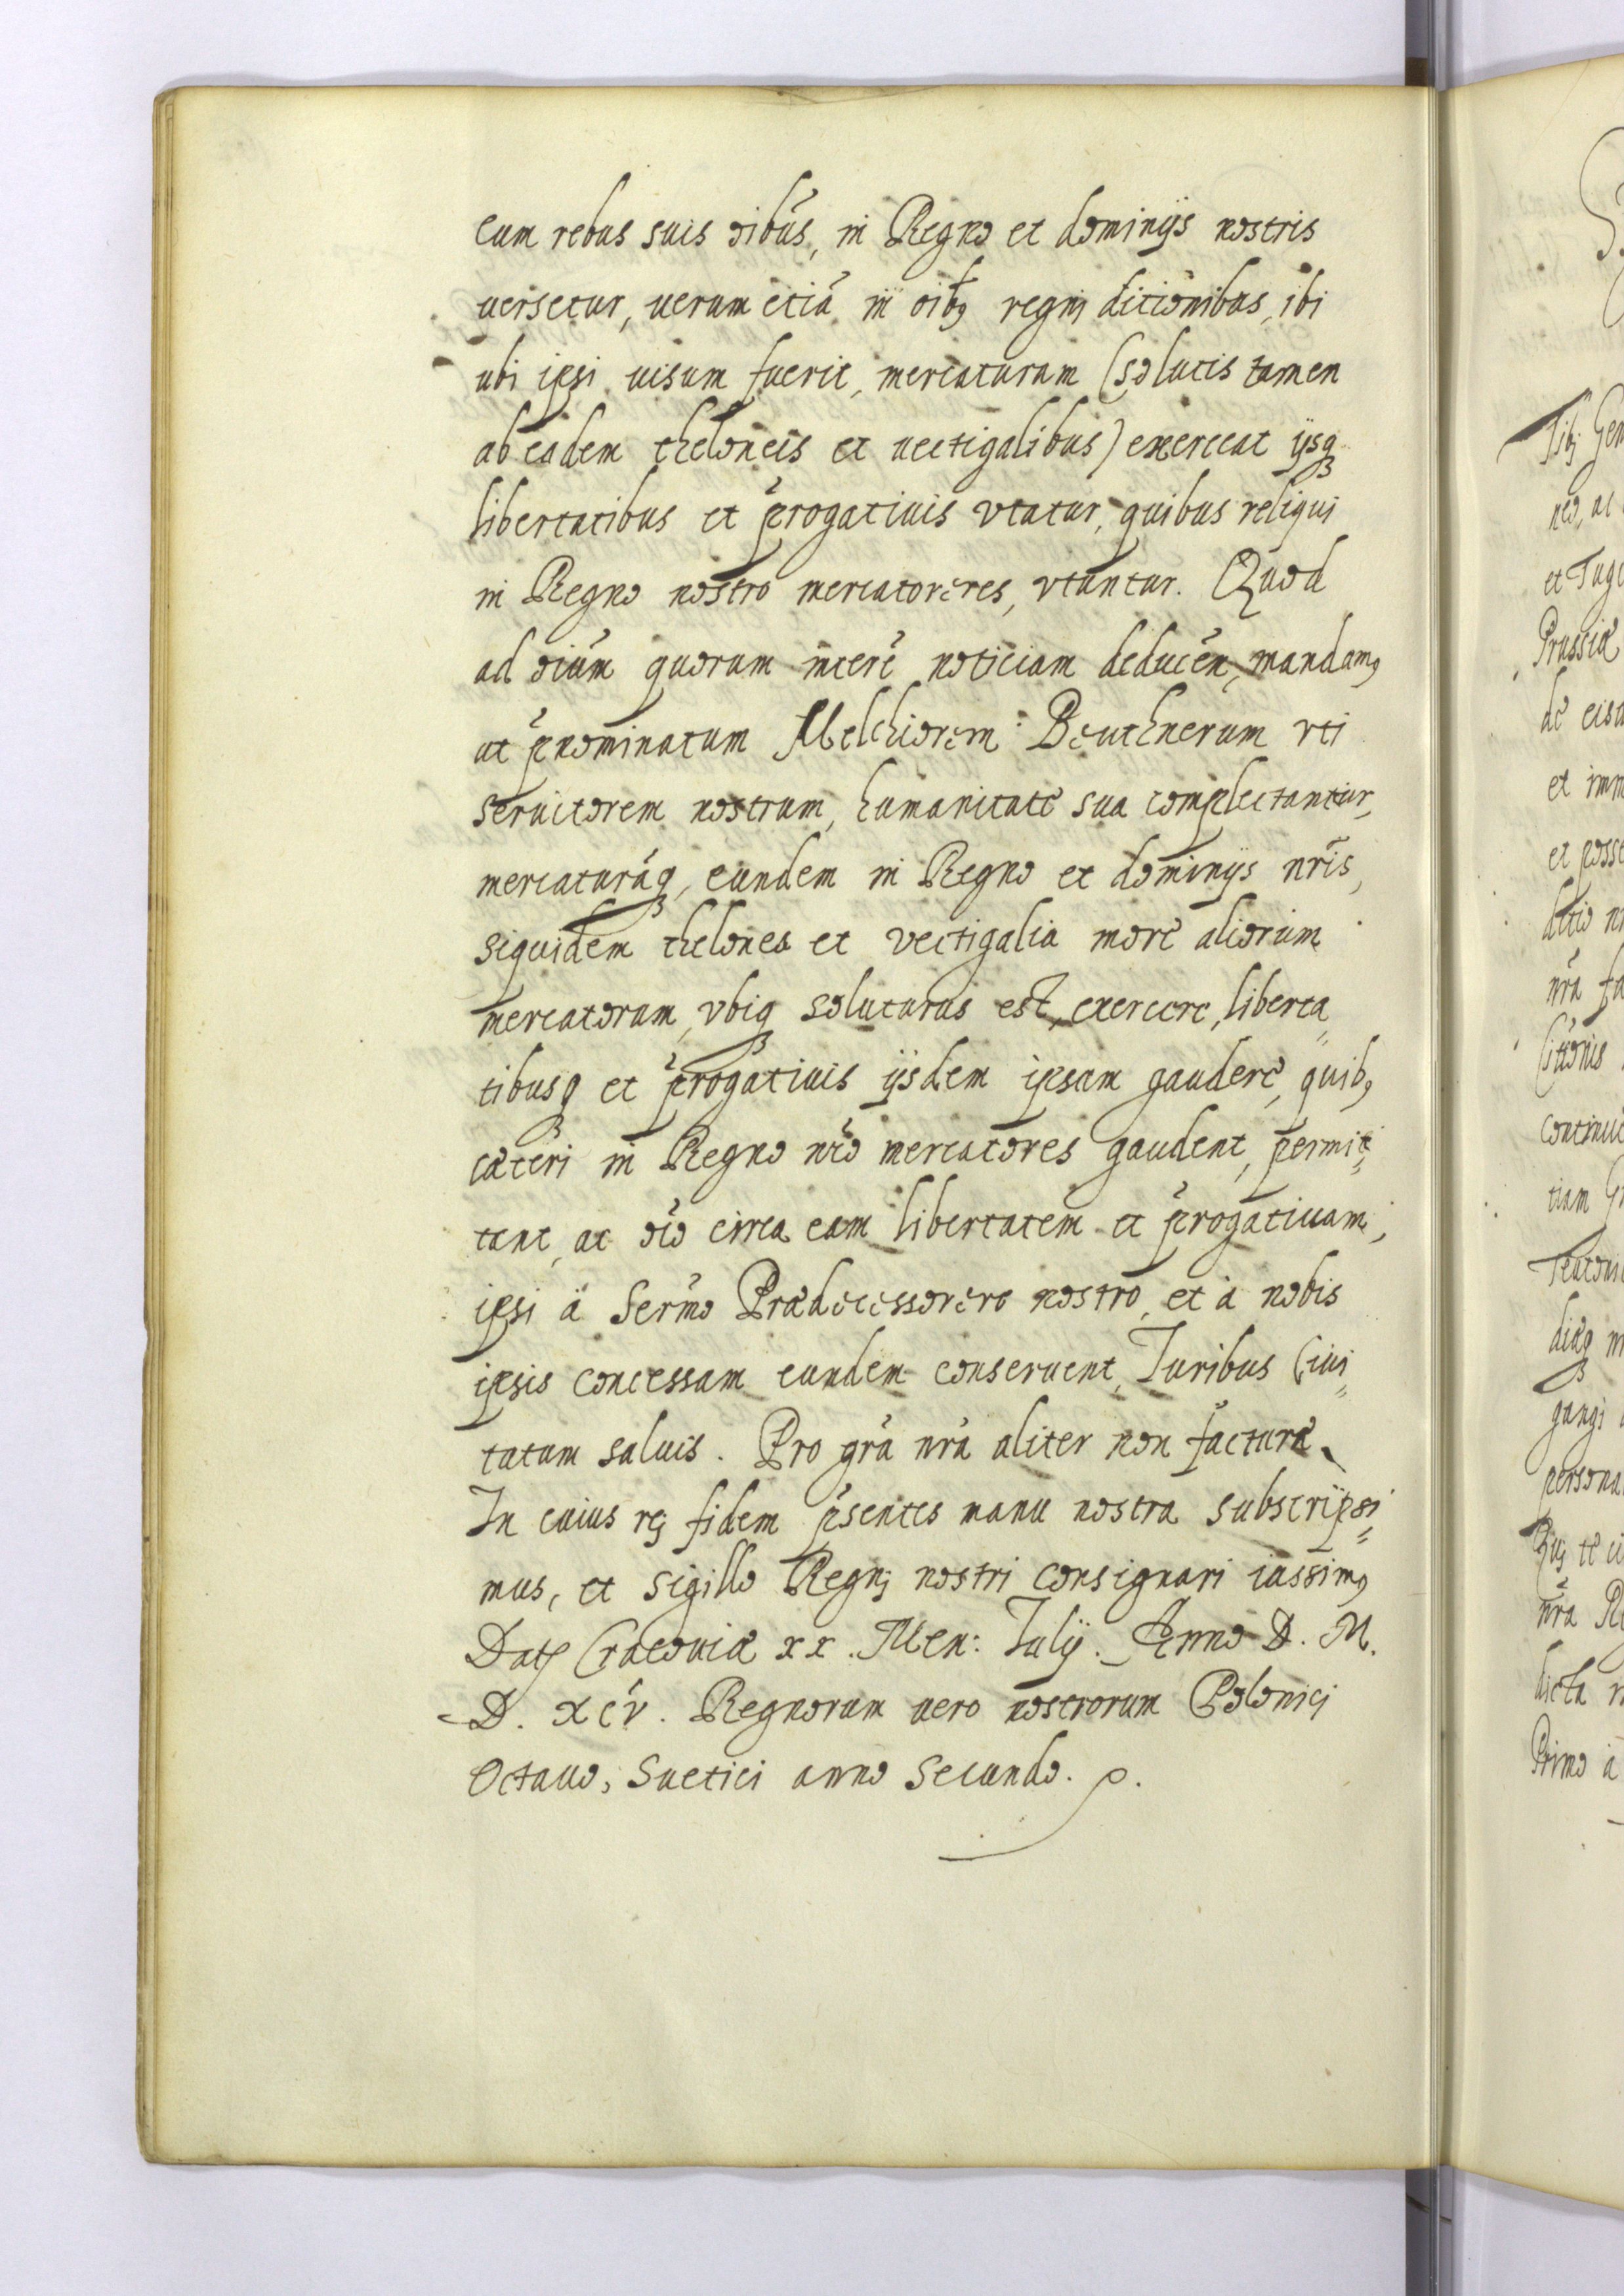 cum rebus suis oibūs, in Regno et dominijs nostris
uersetur, uerum etiā in oibꝰ regnj ditionibus, ibi
ubi ipsi uisum fuerit, mercaturam (solutis tamen
ab eadem theloneis et uectigalibus) exerceat ijsqꝫ
libertatibus et p̄rogatiuis vtatur, quibus reliqui
in Regno nostro mercatores, vtuntur. Quod
ad oiūm quorum interē noticiam deducēn, mandamꝰ
ut p̄nominatum Melchiorem Beuthnerum vti
seruitorem nostrum, humanitate sua complectantur,
mercaturāqꝫ, eundem in Regno et dominijs nrīs,
siquidem thelonea et vectigalia more aliorum
mercatorum, vbiqꝫ soluturus est, exercere, liberta„
tibusqꝫ et p̄rogatiuis ijsdem ipsum gaudere, quibꝰ
cæteri in Regno nrō mercatores gaudent, permit„
tant, ac oīo circa eam libertatem et p̄rogatiuam,
ipsi á Sermō Prædecessore nostro, et à nobis
ipsis concessam eundem conseruent, Iuribus Ciui„
tatum saluis. Pro grā nrā aliter non facturi.
In cuius rej fidem p̄sentes manu nostra subscripsi„
mus, et sigillo Regnj nostri consignari iussimꝰ
Datꝭ Cracouiæ xx. Men: Iulij. Anno D. M.
D. XCV. Regnorum uero nostrorum Polonici
Octauo, Suetici anno secundo.
Prussiæ
et
nrā
Primo à